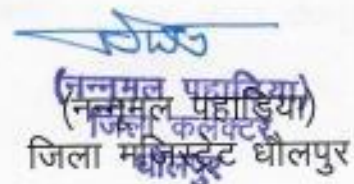 (नन्नूमल पहाडिया)
जिला कलक्टर
धौलपुर
(नन्नूमल पहाड़िया)
जिला मजिस्ट्रेट धौलपुर